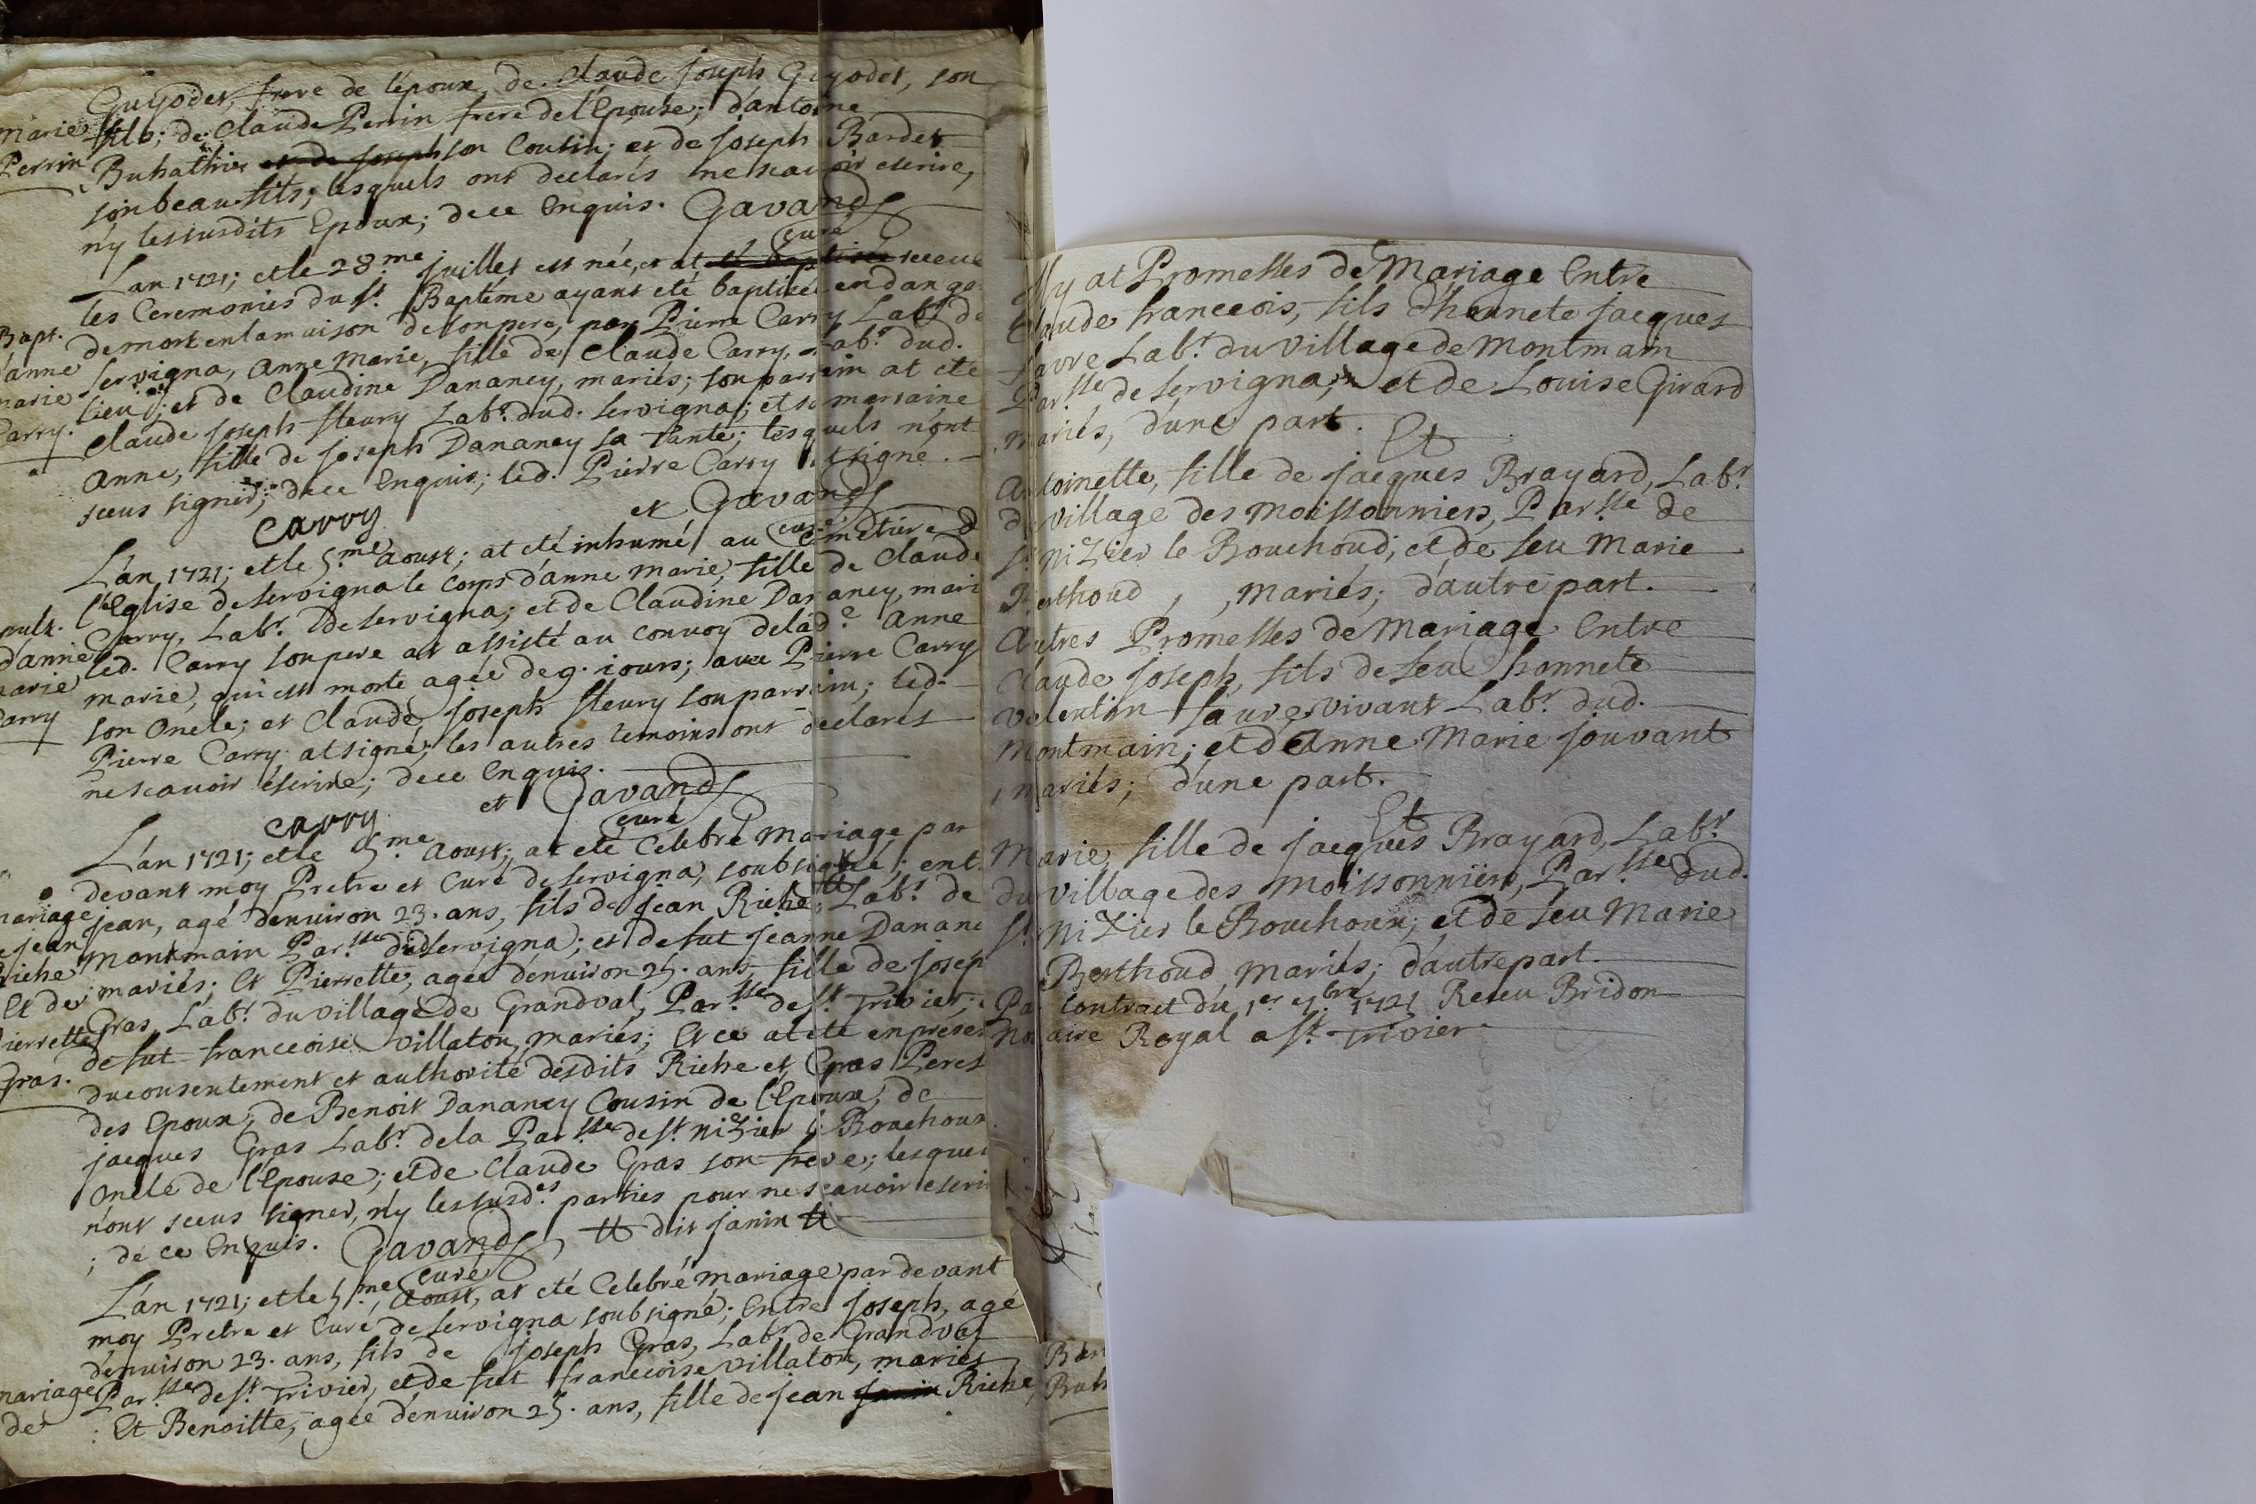 Guyodet, frere de l'époux, de Claude joseph Guyodet, son
marie fils; de Claude Perrin frere de l'Epouse; d'antoine
Perrin Buhathier et de joseph son Cousin; et de joseph Bardet
son beau fils; lesquels ont declarés ne scavoir escrire,
n'y lessusdits Epoux; de ce Enquis. Gavand
curé
L'an 1721; et le 28.me juillet est née, et at été baptisée receue
les Ceremonies du st. Baptême ayant eté baptisée en dange
Bapt. de mort en la maison de son pere, par Pierre Carry Lab.r de
d'anne Servigna, Anne Marie, fille de Claude Carry, Lab.r dud.
marie lieu; et de Claudine Dananey, mariés; son parrein at eté
Carry. Claude joseph fleury Lab.r dud. Servigna; et sa marraine
Anne, fille de joseph Dananey sa tante; lesquels n'ont
sceus signer; de ce Enquis; led. Pierre Carry at signé.
carry et Gavand
curé
L'an 1721; et le 5.me Aoust; at eté inhumé au Cimetiere d
l'Eglise de Servigna le corps d'anne Marie, fille de Claude
pult. Carry, Lab.r de Servigna; et de Claudine Dananey, mari
d'anne led. Carry son pere at assisté au convoy de lad.e Anne
marie marie, qui est morte agée de 9. jours; avec Pierre Carry
Carry son Oncle; et Claude joseph fleury son parrein; led.
Pierre Carry at signé; les autres temoins ont declarés
ne scavoir escrire; de ce Enquis.
carry et Gavand
curé
L'an 1721; et le 5.me Aoust; at eté Celebré Mariage par
devant moy Pretre et Curé de Servigna, soubsigné; ent
mariage jean, agé d'enuiron 23. ans, fils de jean Riche, Lab.r de
e jean Montmain Par.sse dud Servigna; et de fut jeanne Danane
Riche mariés; Et Pierrette, agée d'enuiron 25. ans, fille de josep
Et de Gras, Lab.r du village de Grandval, Par.sse de st. Trivier;
Pierrette de fut francoise Villaton, mariés; Et ce at eté en presen
Gras. du consentement et authorité desdits Riche et Gras Peres
des Epoux; de Benoit Dananey Cousin de l'Epoux; de
jacques Gras Lab.r de la Par.sse de st. Nizier le Bouchoux
Oncle de l'Epouse; et de Claude Gras son frere; lesquel
n'ont sceus signer, n'y les susd.es parties pour ne scavoir escri
; de ce Enquis. Gavand, # dit janin #
curé
L'an 1721; et le 5.me Aoust, at eté Celebré Mariage par devant
moy Pretre et Curé de Servigna soubsigné; Entre joseph, agé
d'enuiron 23. ans, fils de joseph Gras, Lab.r de Grandval
mariage Par.sse de st. Trivier, et de fut francoise Villaton, mariés
de Et Benoitte, agée d'enuiron 25. ans, fille de jean janin Riche,
Il y at Promesses de Mariage Entre
Claude francois, fils d'honnete jacques
favre Lab.r du Village de Montmain
Par.sse de Servigna; et de Louise Girard
mariés, d'une part.
Et
Antoinette, fille de jacques Brayard, Lab.r
du village des Moissonniers, Par.sse de
st. Nizier le Bouchoud; et de feu Marie
Berthoud, mariés; d'autre part.
Autres Promesses de Mariage Entre
Claude joseph, fils de feu honnete
Valentin fauvre vivant Lab.r dud.
Montmain; et d'Anne Marie jouvant
mariés; d'une part.
Et
Marie, fille de jacques Brayard, Lab.r
du village des Moissonniers, Par.sse dud.
st. Nizier le Bouchoux; et de feu Marie
Berthoud, mariés; d'autre part.
Par Contract du 1.er 7.bre 1721 Receu Bridon
Notaire Royal a st. Trivier